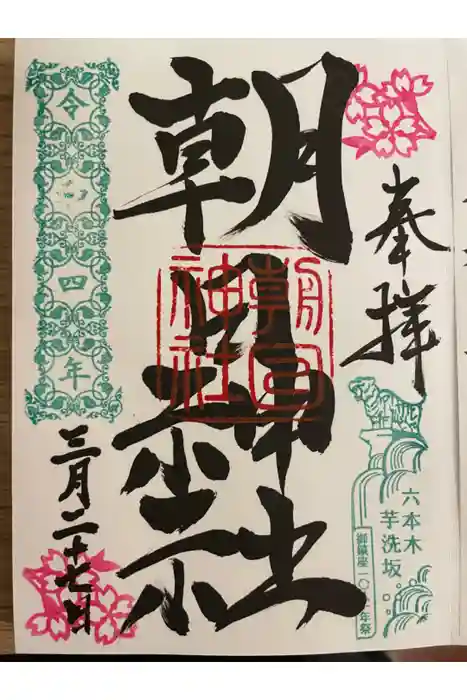 奉拝
六本木
芋洗坂
御鎮座一〇
年祭
朝日神社
朝日
神社
令和四年
三月二十七日